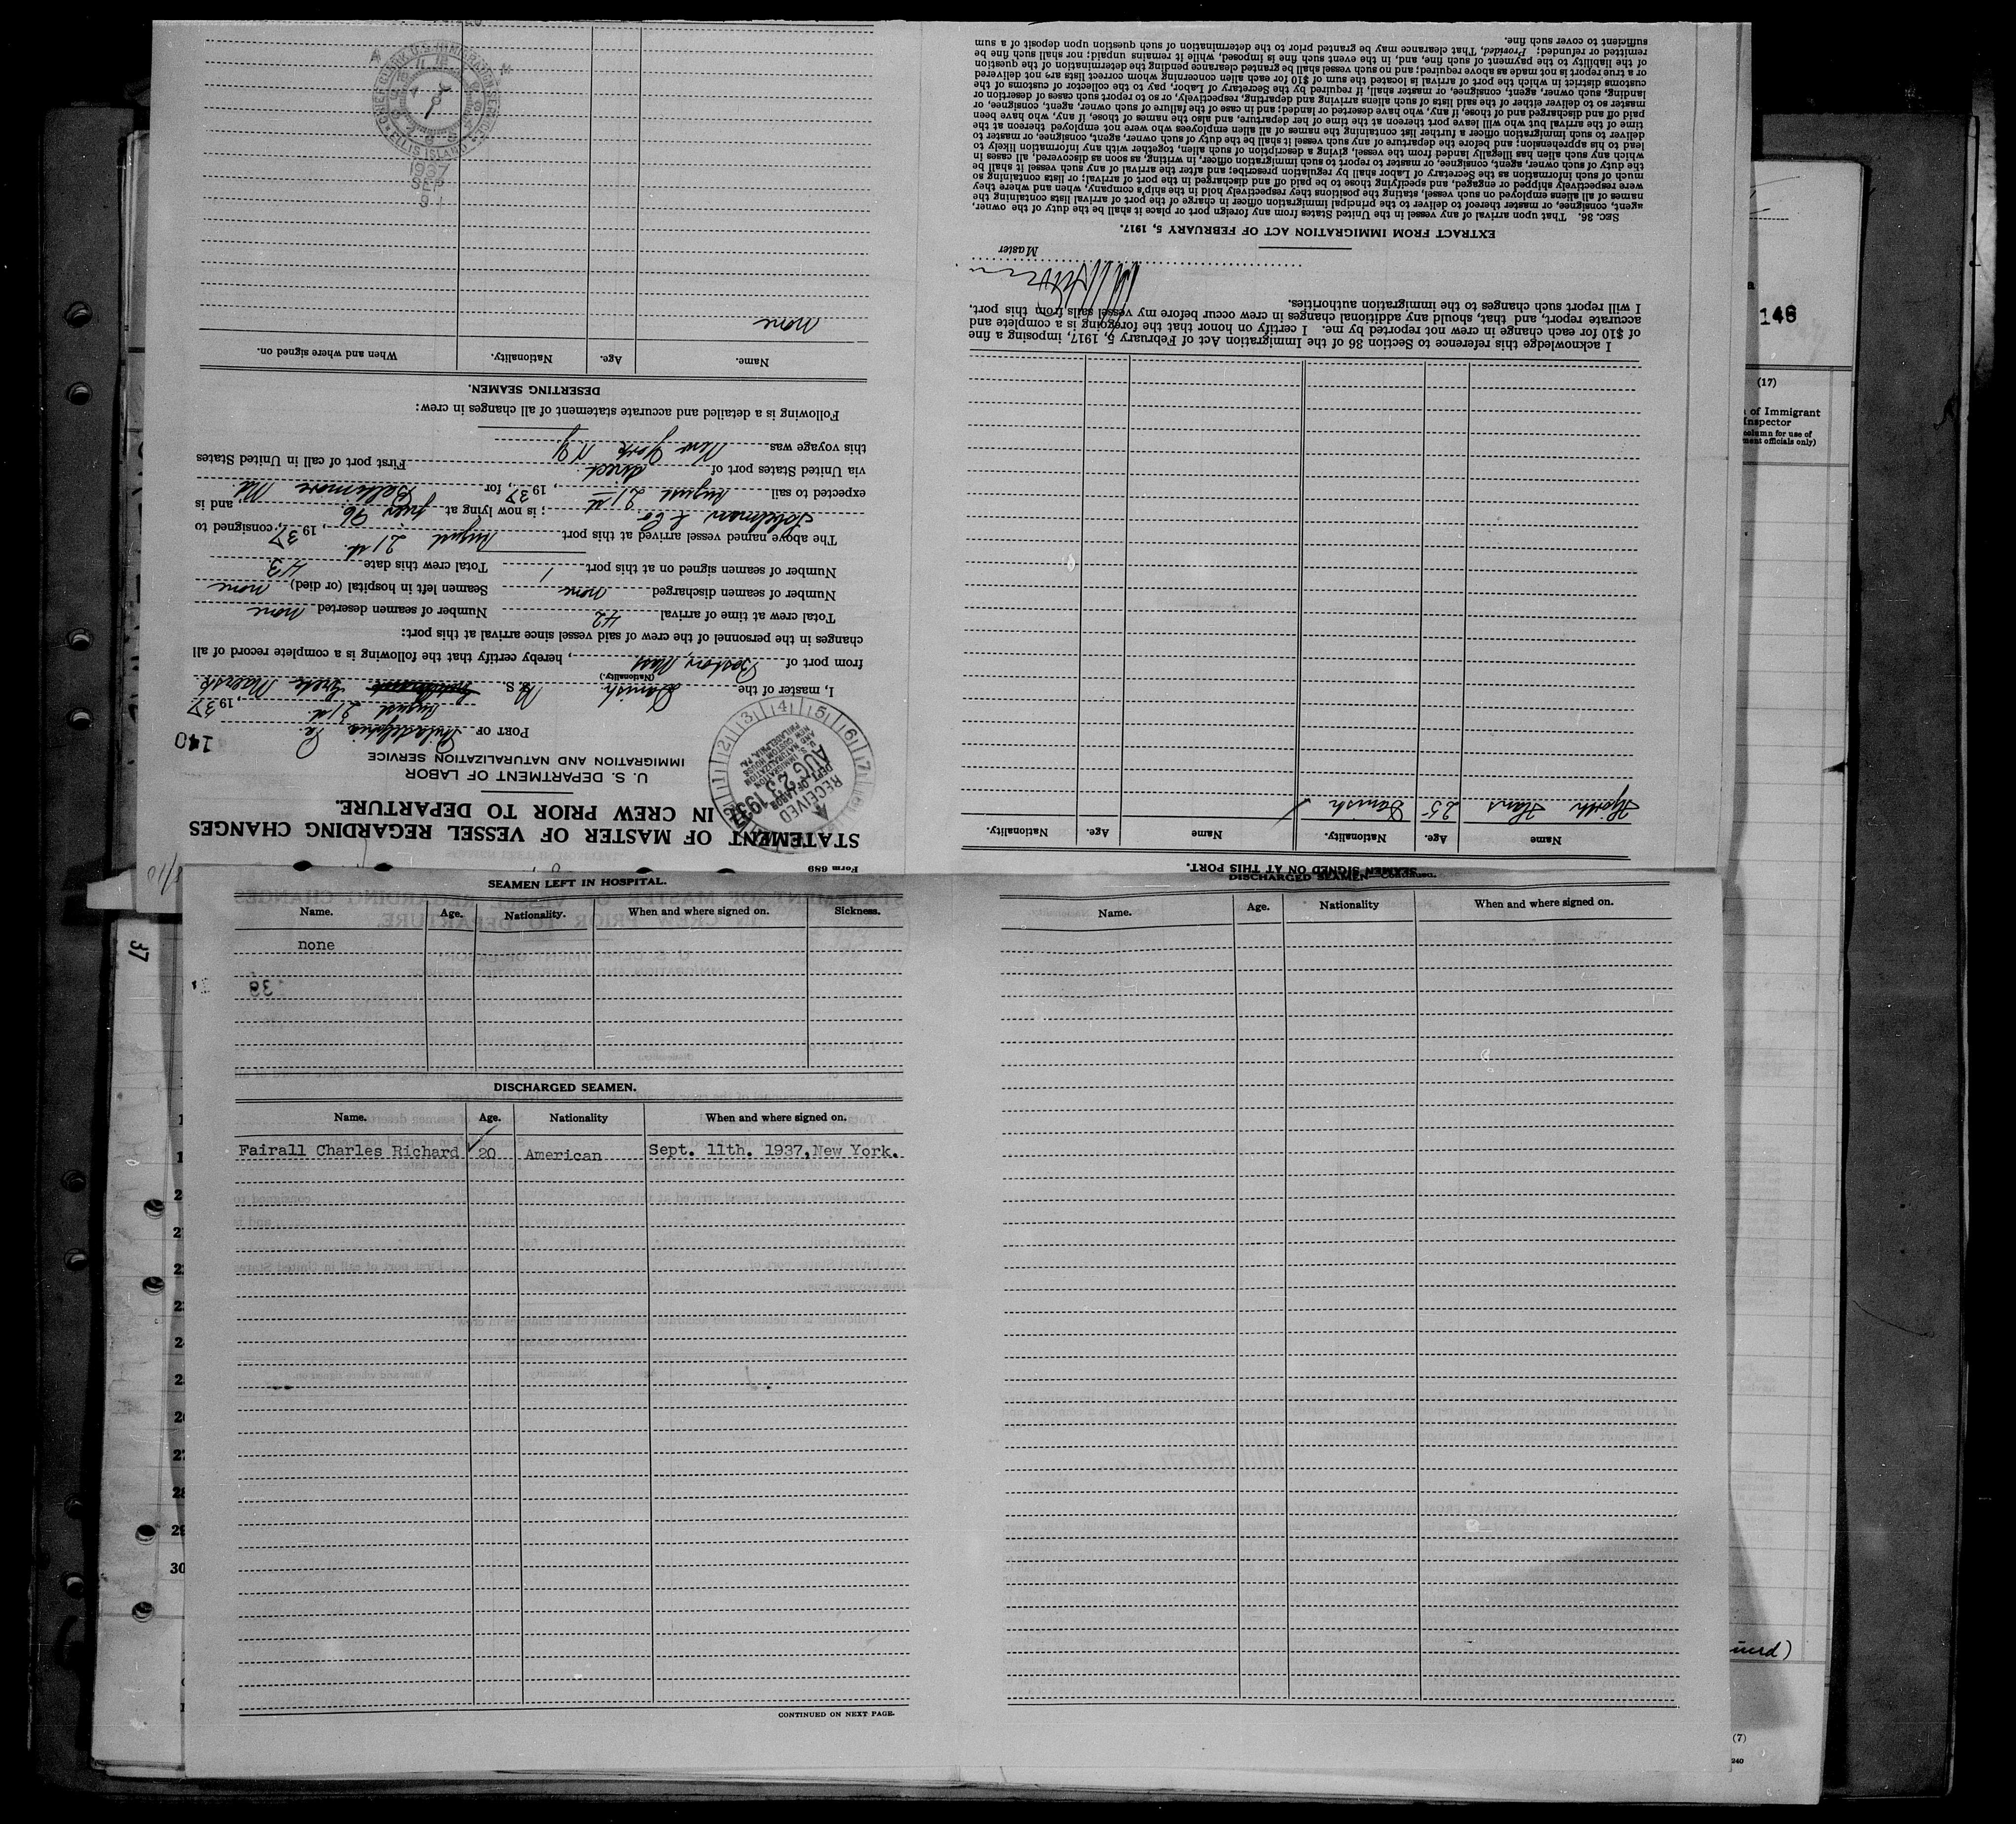 Form 689
STATEMENT OF MASTER OF VESSEL REGARDING CHANGES
IN CREW PRIOR TO DEPARTURE.
U. S. DEPARTMENT OF LABOR
IMMIGRATION AND NATURALIZATION SERVICE
140
PORT OF Philadelphia Pa.
August 21st, 1937
I, master of the Danish M.S. Grete Maersk
(Nationality.)
from port of Boston, Mass, hereby certify that the following is a complete record of all
changes in the personnel of the crew of said vessel since arrival at this port:
Total crew at time of arrival 42 Number of seamen deserted none
Number of seamen discharged none Seamen left in hospital (or died) none
Number of seamen signed on at this port 1 Total crew this date 43
The above named vessel arrived at this port August 21st, 1937, consigned to
& Co; is now lying at pier 96 and is
expected to sail August 21st, 1937, for Baltimore Md.
via United States port of direct First port of call in United States
this voyage was New York N.Y.
Following is a detailed and accurate statement of all changes in crew:
DESERTING SEAMEN.
Name. Age. Nationality. When and where signed on.
none
RECEIVED
DEPT. OF LABOR
AUG 23 1937
U. S. IMMIGRATION
AND NATURALIZATION
NEW CUSTOM HOUSE
PHILADELPHIA, PA.
U.S. IMMIGRATION SERVICE
ELLIS ISLAND
1937
SEP
9
SEAMEN SIGNED ON AT THIS PORT.
Name Age. Nationality. Name Age. Nationality.
Hjorth Hans 25 Danish
I acknowledge this reference to Section 36 of the Immigration Act of February 5, 1917, imposing a fine
of $10 for each change in crew not reported by me. I certify on honor that the foregoing is a complete and
accurate report, and that, should any additional changes in crew occur before my vessel sails from this port,
I will report such changes to the immigration authorities.
Master
EXTRACT FROM IMMIGRATION ACT OF FEBRUARY 5, 1917.
Sec. 36. That upon arrival of any vessel in the United States from any foreign port or place it shall be the duty of the owner,
agent, consignee, or master thereof to deliver to the principal immigration officer in charge of the port of arrival lists containing the
names of all aliens employed on such vessel, stating the positions they respectively hold in the ship's company, when and where they
were respectively shipped or engaged, and specifying those to be paid off and discharged in the port of arrival; or lists containing so
much of such information as the Secretary of Labor shall by regulation prescribe; and after the arrival of any such vessel it shall be
the duty of such owner, agent, consignee, or master to report to such immigration officer, in writing, as soon as discovered, all cases in
which any such alien has illegally landed from the vessel, giving a description of such alien, together with any information likely to
lead to his apprehension; and before the departure of any such vessel it shall be the duty of such owner, agent, consignee, or master to
deliver to such immigration officer a further list containing the names of all alien employees who were not employed thereon at the
time of the arrival but who will leave port thereon at the time of her departure, and also the names of those, if any, who have been
paid off and discharged and of those, if any, who have deserted or landed; and in case of the failure of such owner, agent, consignee, or
master so to deliver either of the said lists of such aliens arriving and departing, respectively, or so to report such cases of desertion or
landing, such owner, agent, consignee, or master shall, if required by the Secretary of Labor, pay to the collector of customs of the
customs district in which the port of arrival is located the sum of $10 for each alien concerning whom correct lists are not delivered
or a true report is not made as above required; and no such vessel shall be granted clearance pending the determination of the question
of the liability to the payment of such fine, and, in the event such fine is imposed, while it remains unpaid; nor shall such fine be
remitted or refunded; Provided, That clearance may be granted prior to the determination of such question upon deposit of a sum
sufficient to cover such fine.
SEAMEN LEFT IN HOSPITAL.
Name. Age. Nationality. When and where signed on. Sickness.
none
DISCHARGED SEAMEN.
Name. Age. Nationality When and where signed on.
Fairall Charles Richard 20 American Sept. 11th. 1937, New York.
CONTINUED ON NEXT PAGE.
DISCHARGED SEAMEN—Continued.
Name. Age. Nationality When and where signed on.
146
(17)
of Immigrant
Inspector
column for use of
officials only)
37
30
(7)
240